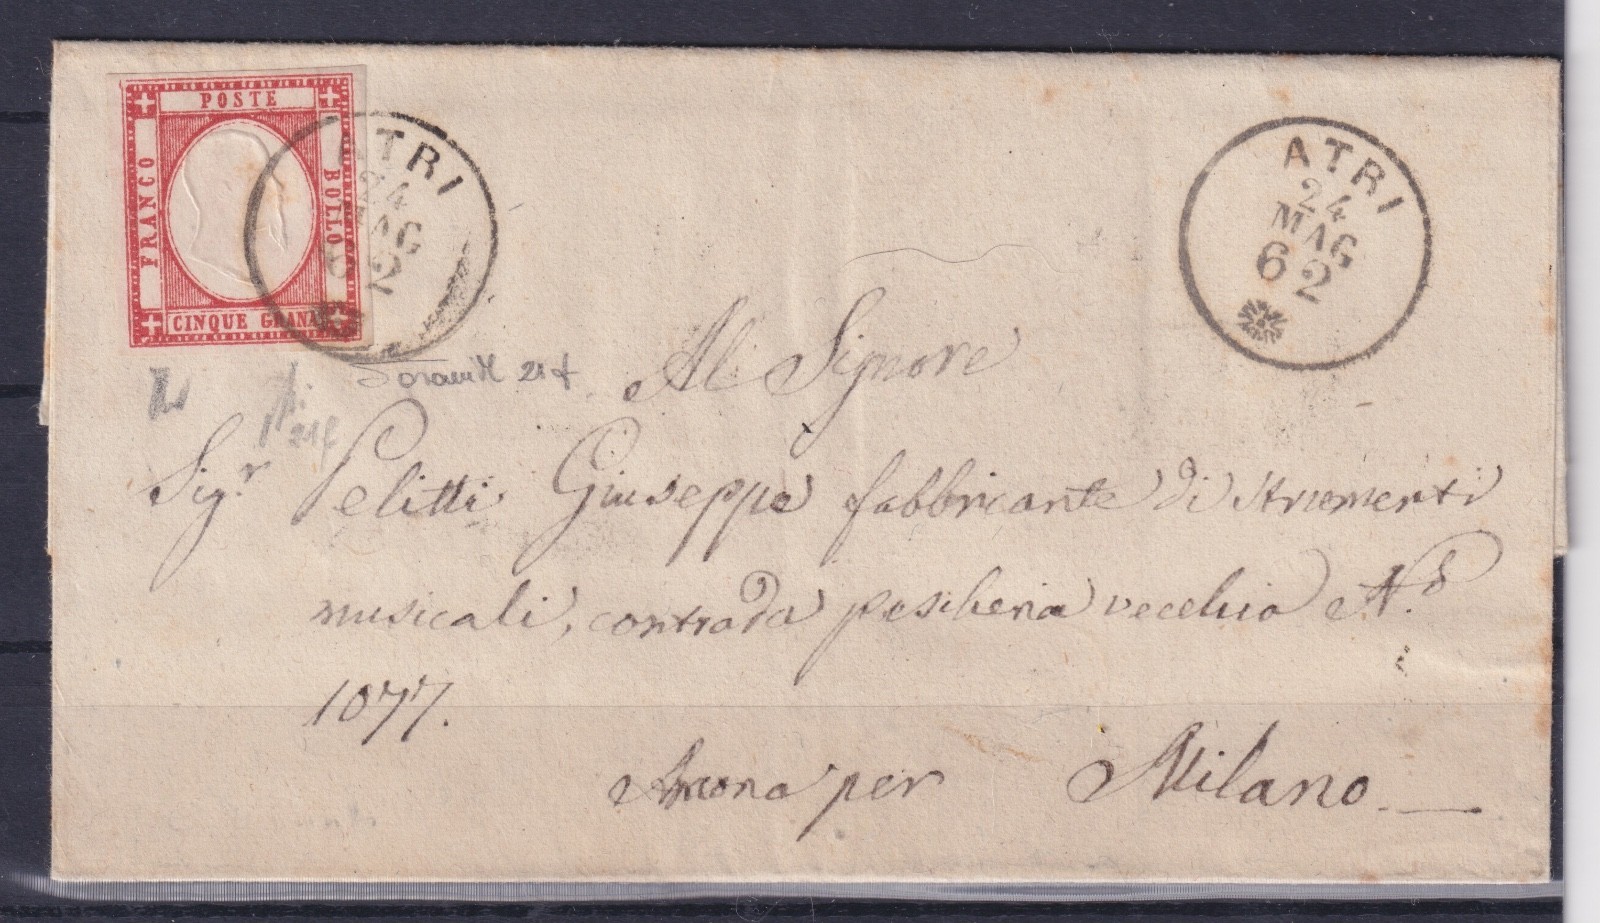 POSTE
FRANCO
BOLLO
CINQUE GRANA
ATRI
24
MAG
62
ATRI
24
MAG
62
21 f
21 f
Al Signore
Sig.r Pelitti Giuseppe fabbricante di strumenti
musicali, contrada peschena vecchia N.o
1077.
Ancona per Milano.